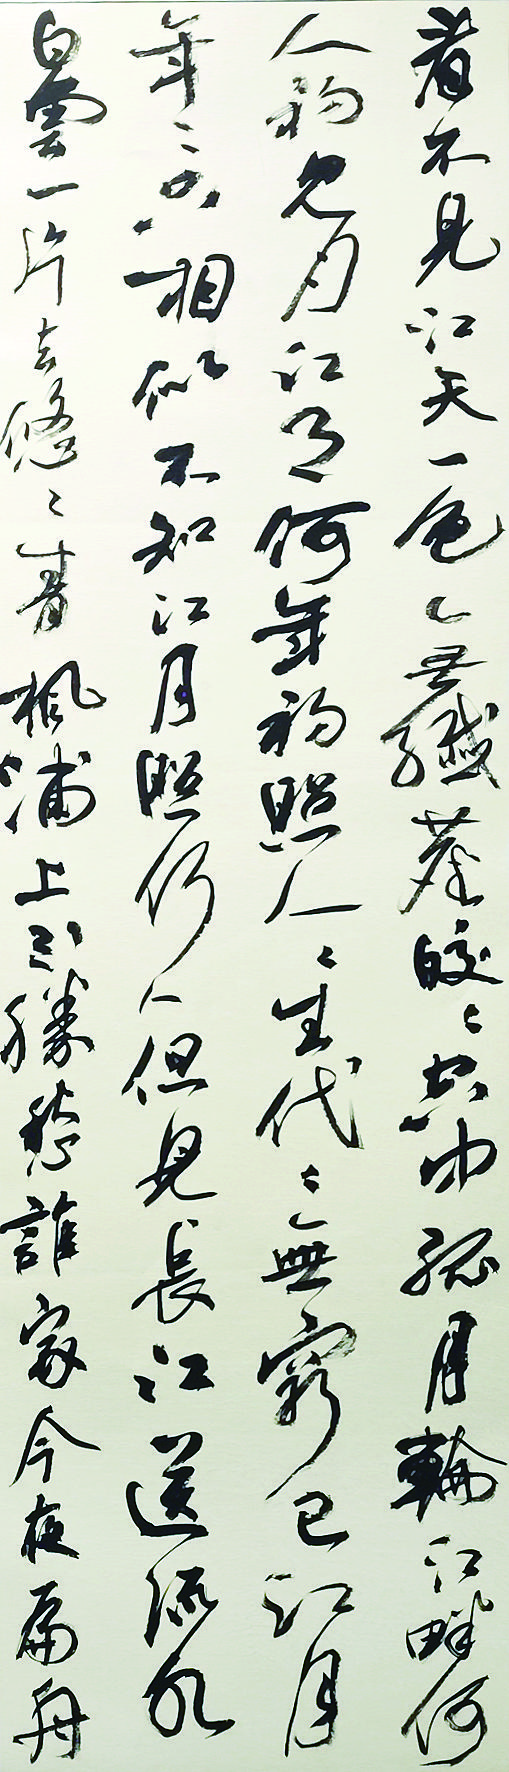 看不見江天一色無纖塵皎〻空中孤月輪江畔何
人初見月江月何年初照人〻生代〻無窮已江月
年〻只相似不知江月照何人但見長江送流水
白雲一片去悠〻青楓浦上不勝愁誰家今夜扁舟